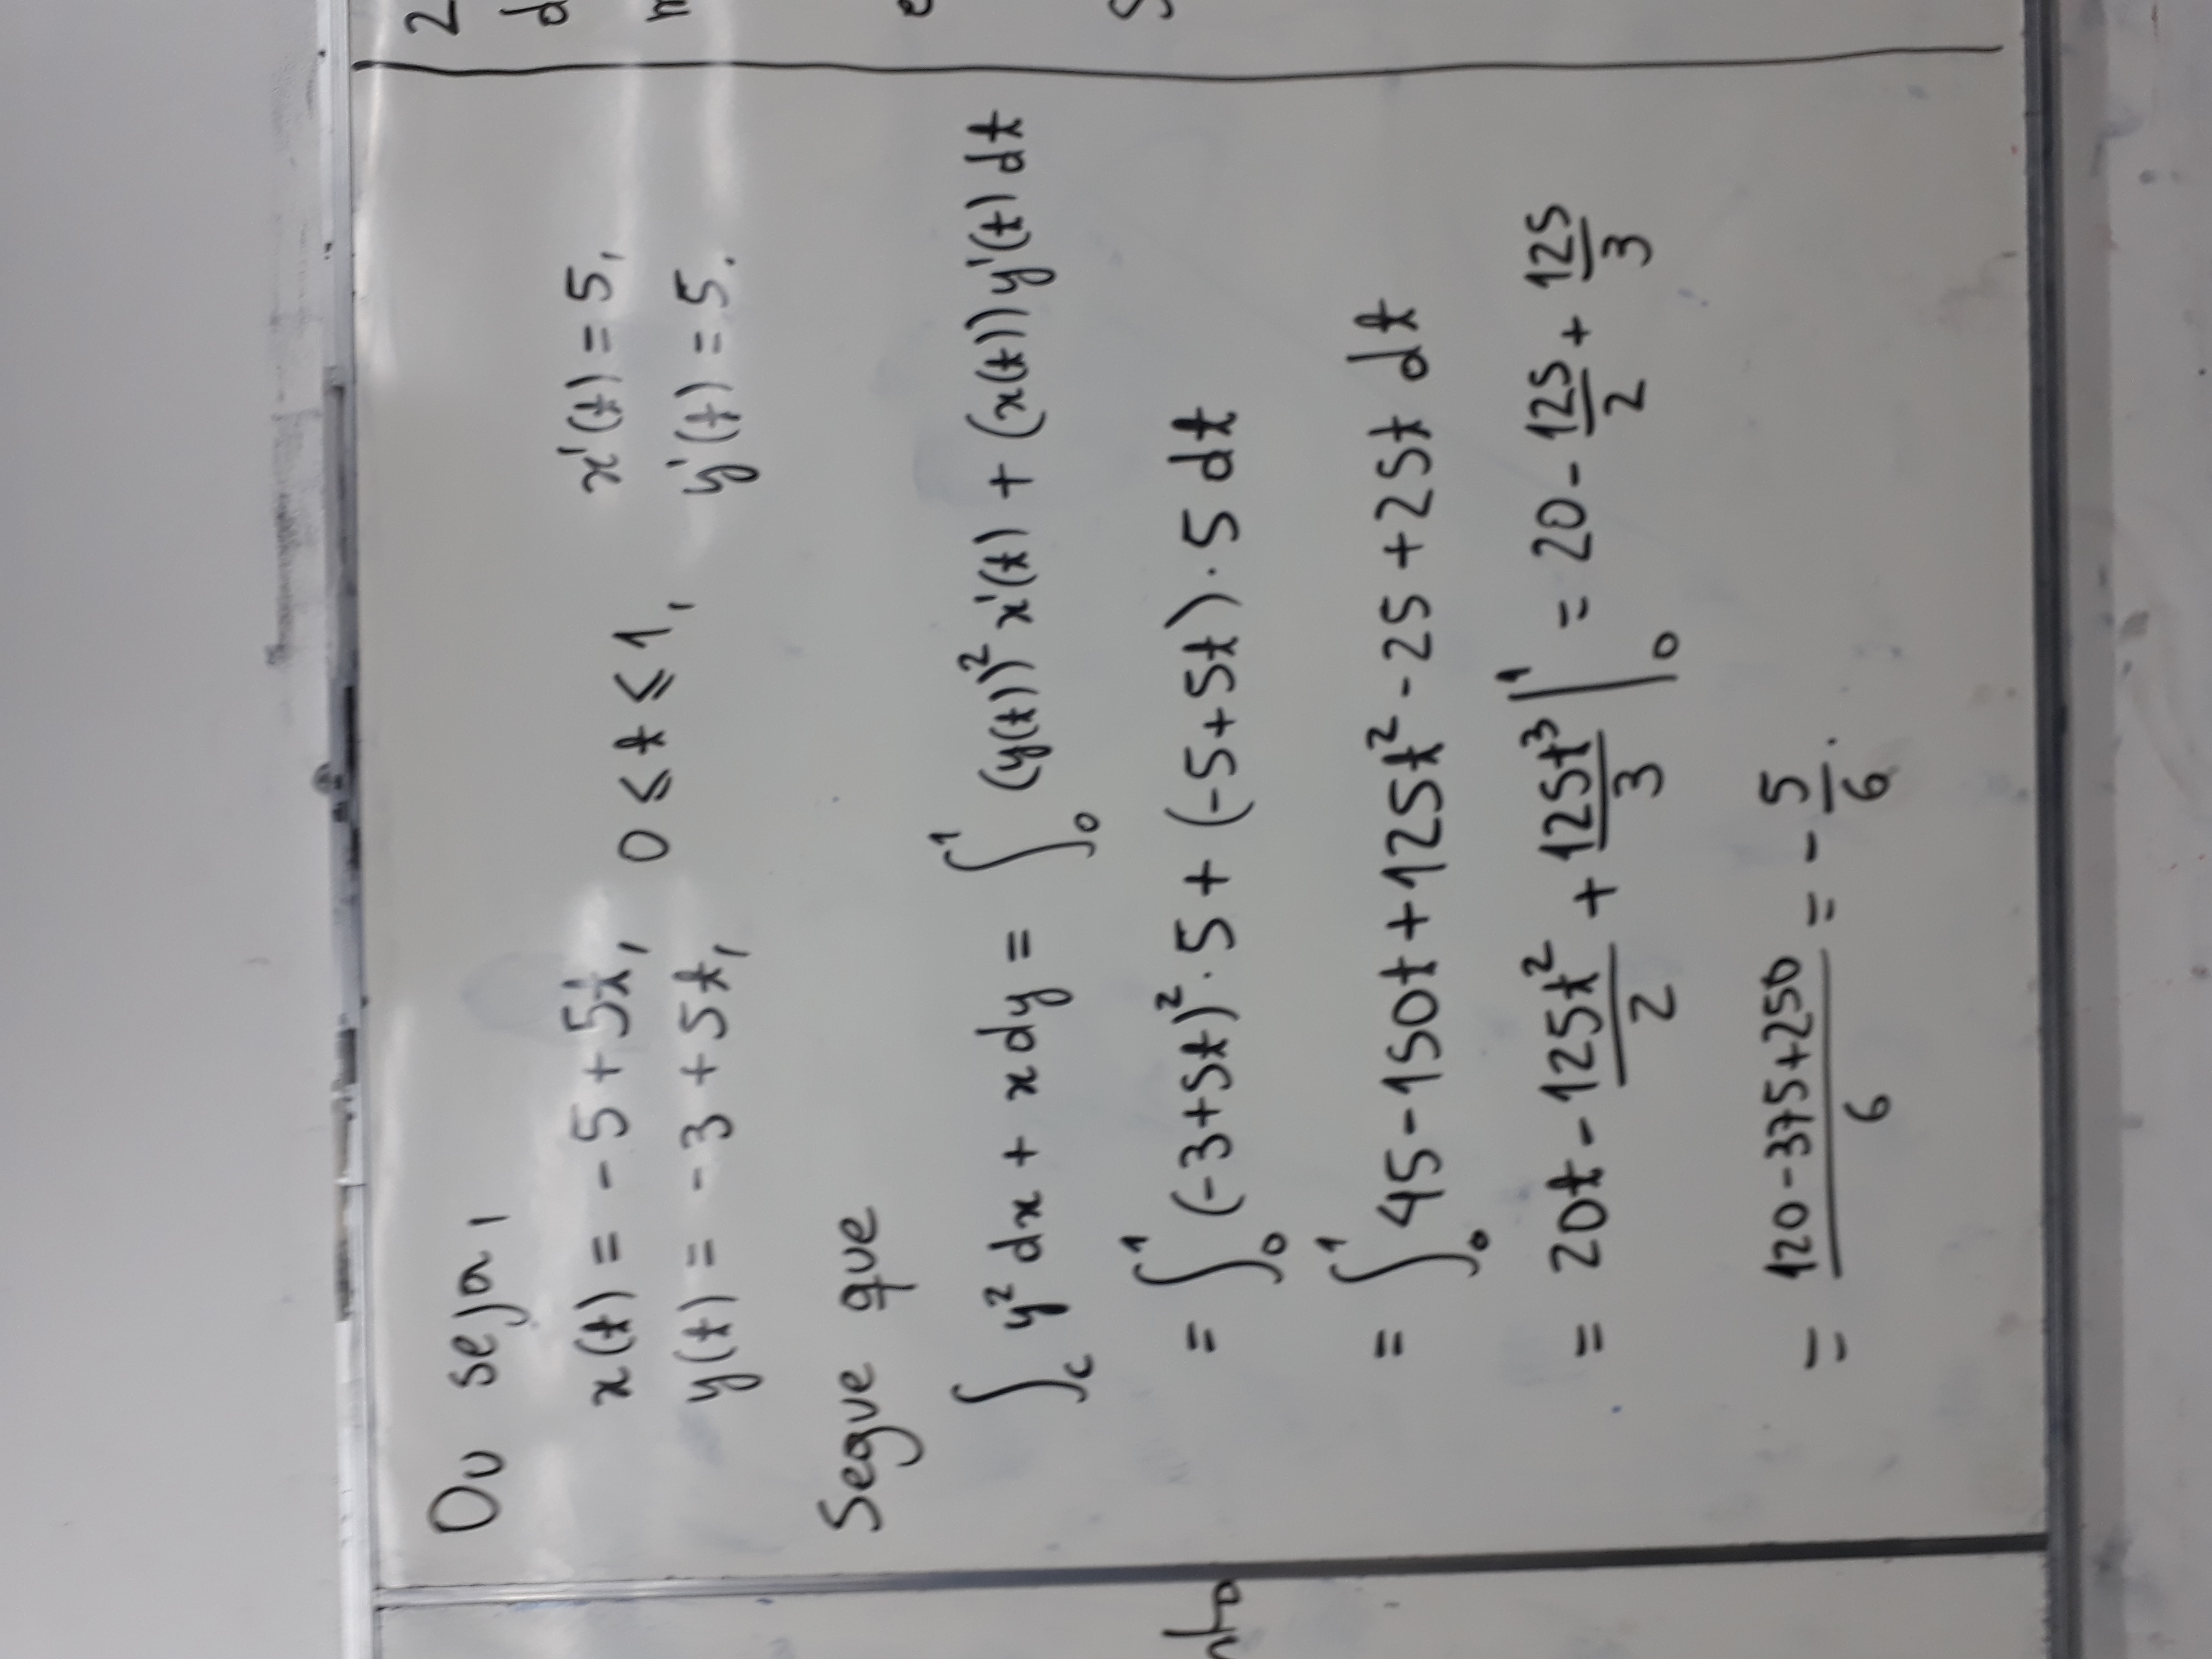 Ou seja,
x(t) = -5+5t, 0 ⩽ t ⩽ 1, x'(t) = 5,
y(t) = -3+5t, y'(t) = 5.
Segue que
∫_C y² dx + x dy = ∫_0^1 (y(t))² x'(t) + (x(t)) y'(t) dt
= ∫_0^1 (-3+5t)²·5 + (-5+5t)·5 dt
= ∫_0^1 45-150t+125t²-25+25t dt
= 20t - 125t²/2 + 125t³/3 |_0^1 = 20 - 125/2 + 125/3
= (120-375+250)/6 = -5/6.
nto
2
d
m
e
S